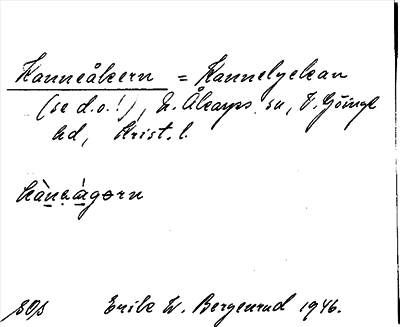 Kanneåkern = Kannelyckan
(se d.o.!), N. Åkarps sn, V. Göinge
hd, Krist. l.
SOS Erik W. Bergenrud 1946.